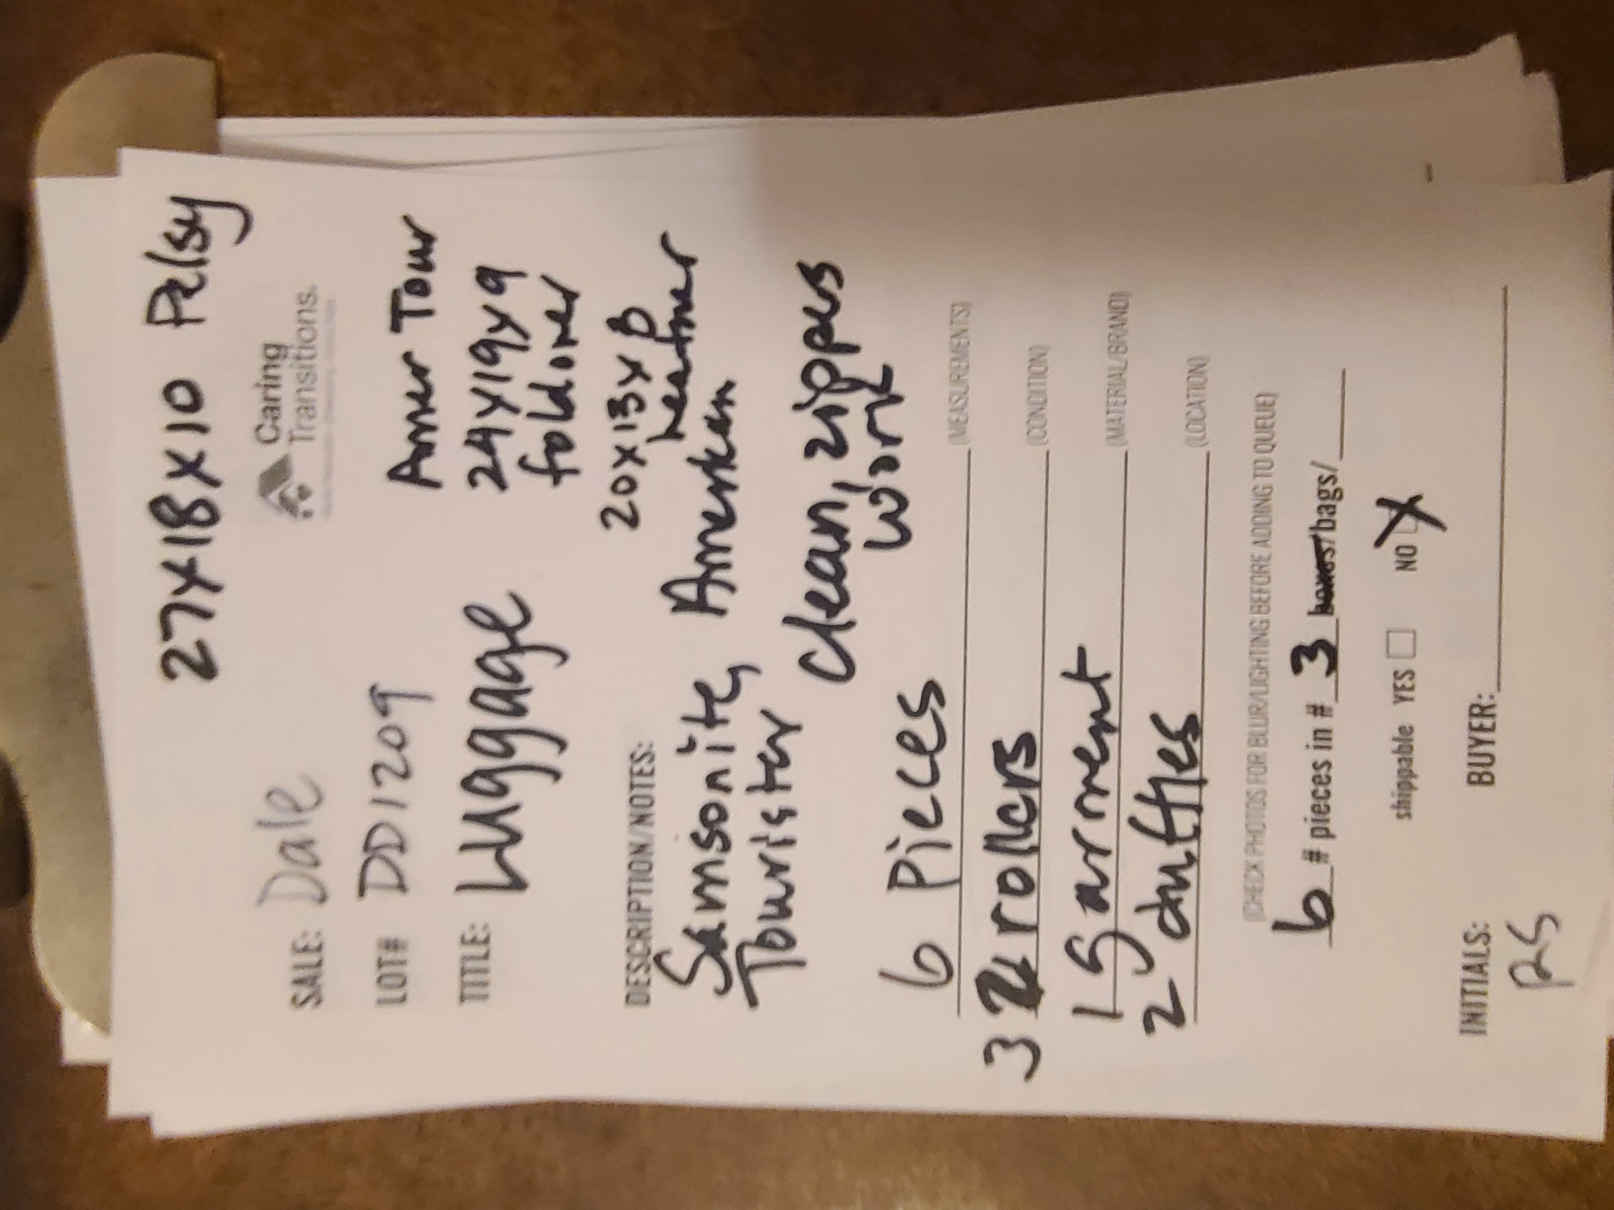 27x18x10 Pelsy
Caring
Transitions.
SALE: Dale
LOT# DD1209
Amer Tour
24x19x9
foldover
TITLE: Luggage
20x13x8
Leather
DESCRIPTION/NOTES:
Samsonite, American
Tourister
Clean, zippers
work
6 Pieces (MEASUREMENTS)
3 rollers (CONDITION)
1 garment (MATERIAL/BRAND)
2 duffles (LOCATION)
(CHECK PHOTOS FOR BLUR/LIGHTING BEFORE ADDING TO QUEUE)
6 # pieces in # 3 boxes/bags/
shippable YES NO X
INITIALS: BUYER:
RS